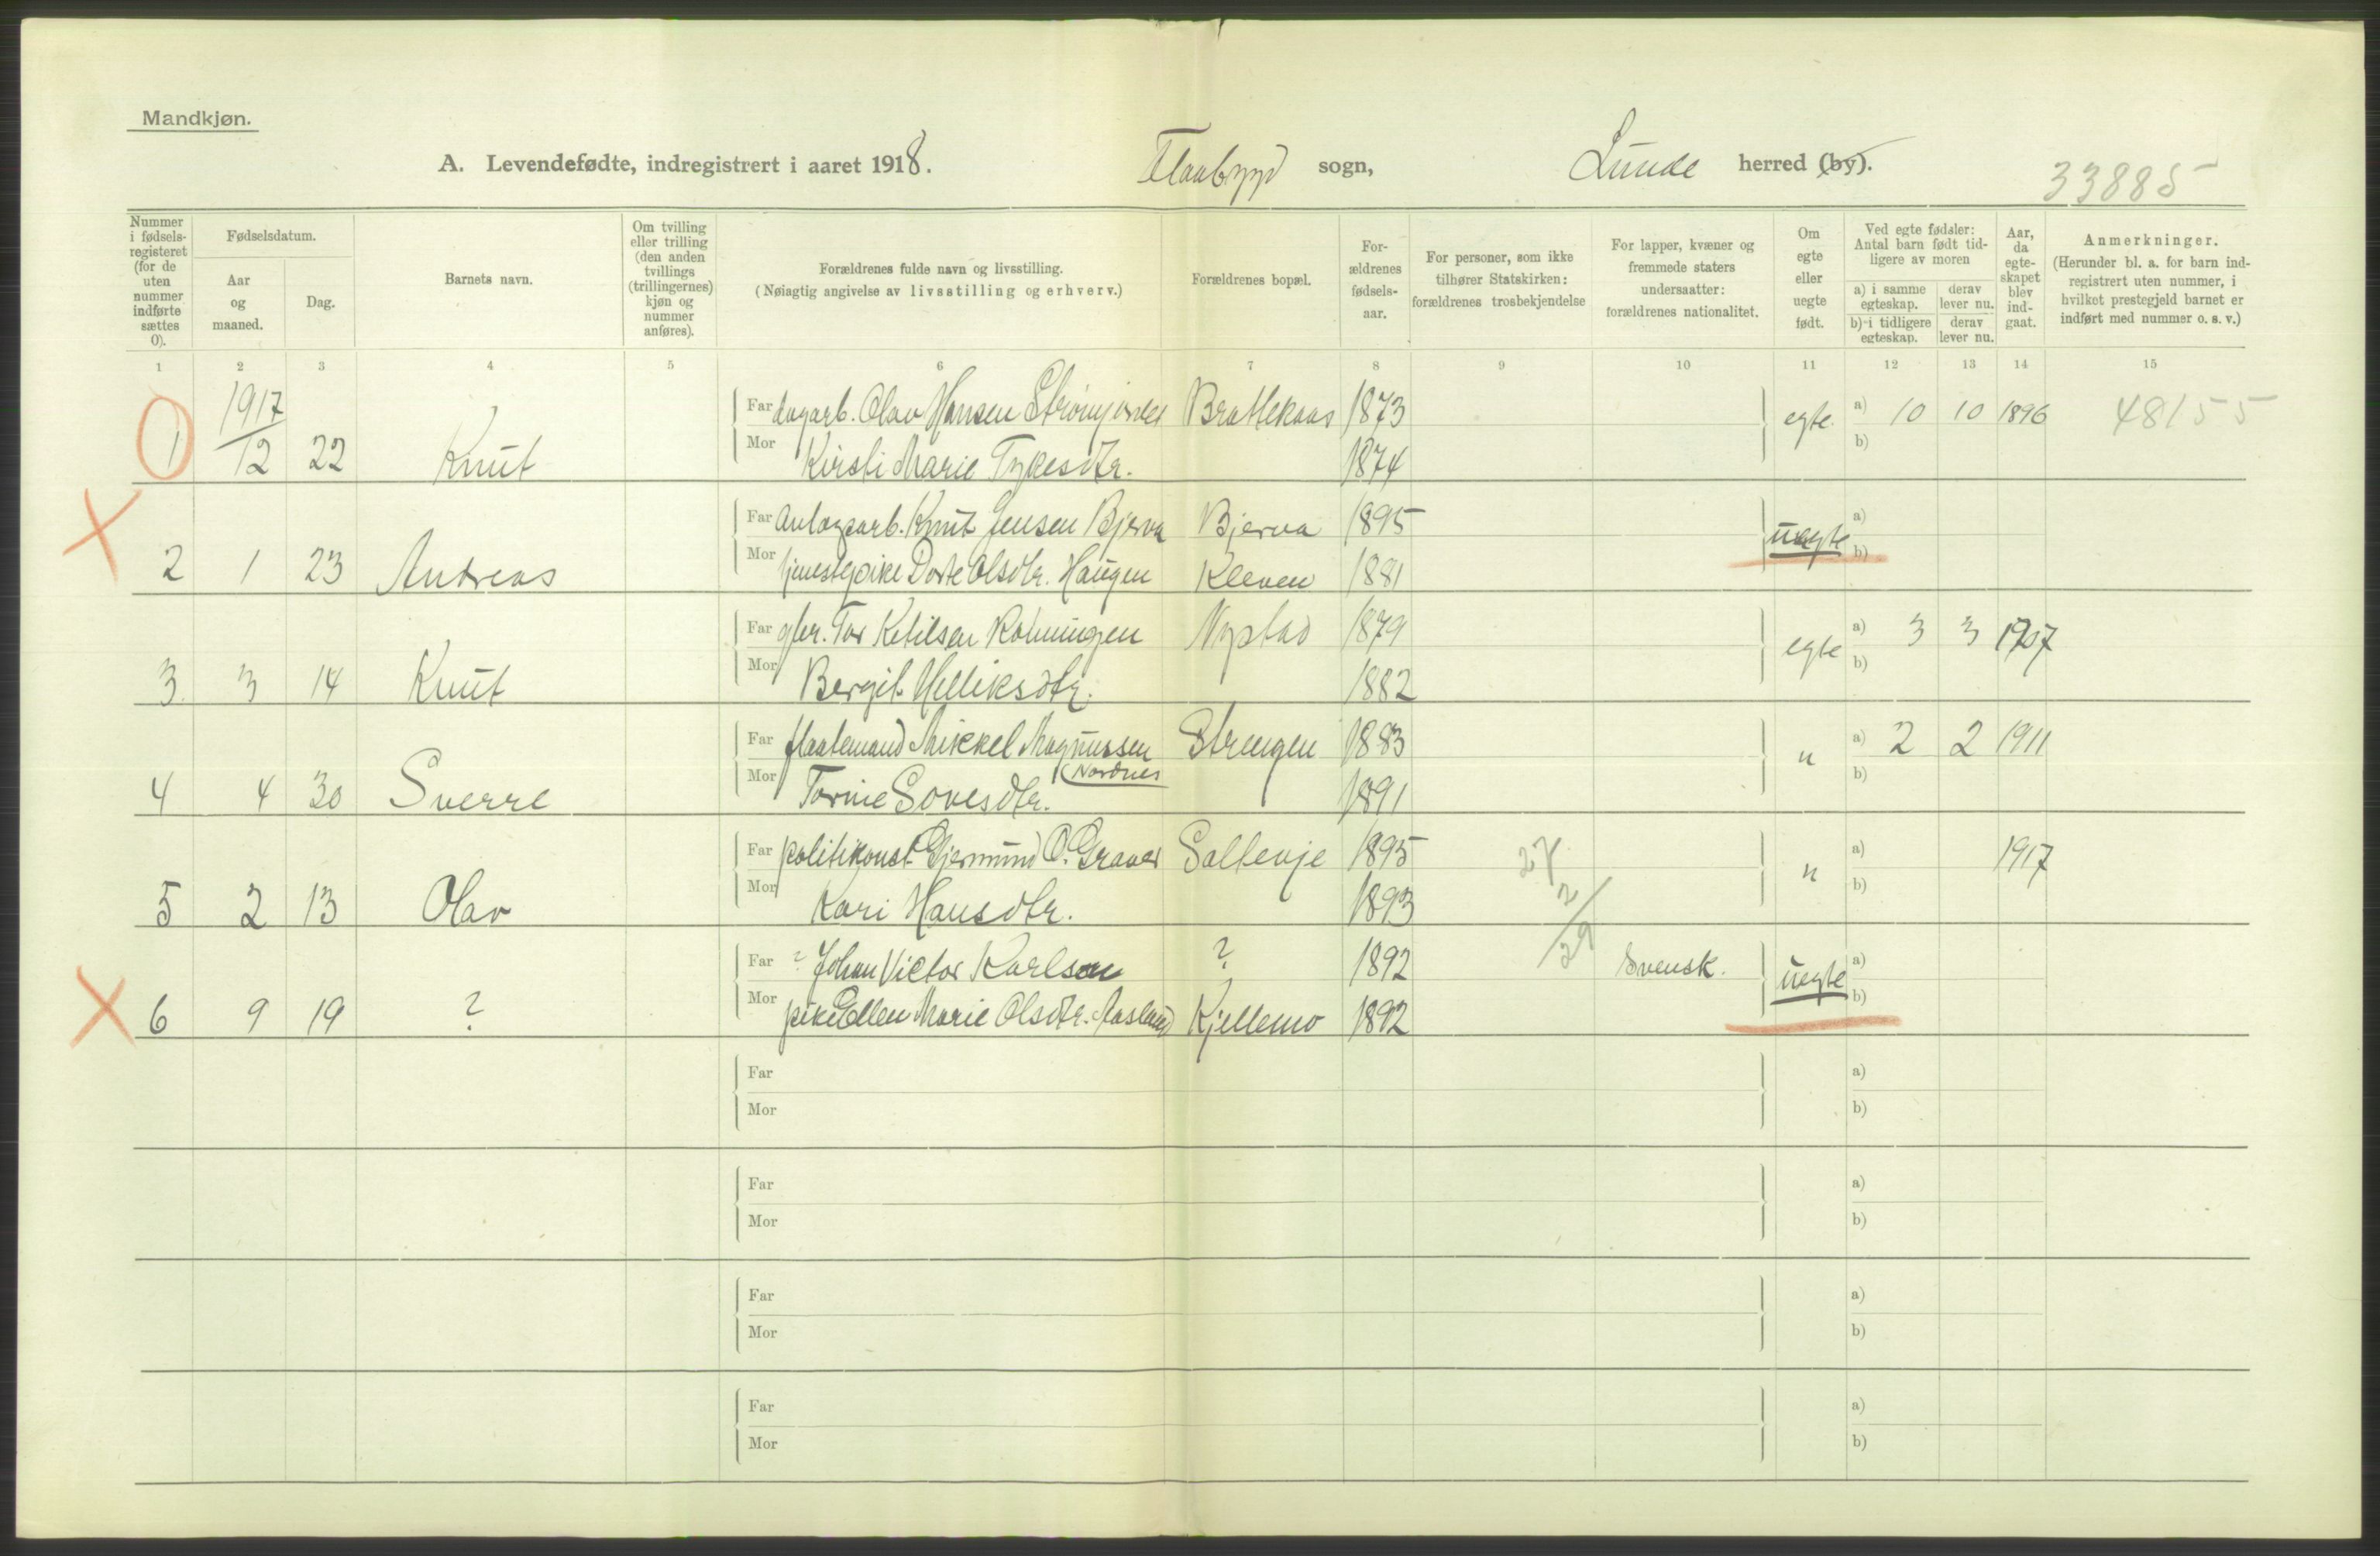 Mandkjøn.
A. Levendefødte, indregistrert i aaret 1918. Flaabygd sogn, Lunde herred (by).
33885
Nummer i fødsels-registeret (for de uten nummer indførte sættes 0).
Fødselsdatum.
Aar og maaned.
Dag.
Barnets navn.
Om tvilling eller trilling (den anden tvillings (trillingernes) kjøn og nummer anføres).
Forældrenes fulde navn og livsstilling.
(Nøiagtig angivelse av livsstilling og erhverv.)
Forældrenes bopæl.
For-ældrenes fødsels-aar.
For personer, som ikke tilhører Statskirken: forældrenes trosbekjendelse
For lapper, kvæner og fremmede staters undersaatter: forældrenes nationalitet.
Om egte eller uegte født.
Ved egte fødsler: Antal barn født tid-ligere av moren
a) i samme egteskap.
derav lever nu.
b) i tidligere egteskap.
derav lever nu.
Aar, da egte-skapet blev ind-gaat.
Anmerkninger.
(Herunder bl. a. for barn ind-registrert uten nummer, i hvilket prestegjeld barnet er indført med nummer o. s. v.)
1 2 3 4 5 6 7 8 9 10 11 12 13 14 15
1917
Far dagarb. Olav Hansen Brattekaas 1873 egte. a) 10 10 1896 48155
1 12 22 Knut Mor Kirsti Marie 1874 b)
Far Anlægsarb. Knut Jensen Bjerva Bjerva 1895 uegte a)
2 1 23 Andreas Mor tjenestepike Dorte Olsdtr. Haugen Kleven 1881 b)
Far gbr. Tov Ketilsen Nystad 1879 egte a) 3 3 1907
3 3 14 Knut Mor Bergit Helliksdtr. 1882 b)
Far Mikkel Magnussen Strengen 1883 " a) 2 2 1911
(Nordnes
4 4 30 Sverre Mor Tornie Sovesdtr. 1891 b)
Far politikonst. Gjermund O. Graver Saltenje 1895 27 " a) 1917
5 2 13 Olav Mor Kari Hansdtr. 1893 2/29 b)
Far ? Johan Victor Karlsen ? 1892 Svensk. uegte a)
6 9 19 ? Mor pike Ellen Marie Olsdtr. Aasland Kjellemo 1892 b)
Far a)
Mor b)
Far a)
Mor b)
Far a)
Mor b)
Far a)
Mor b)